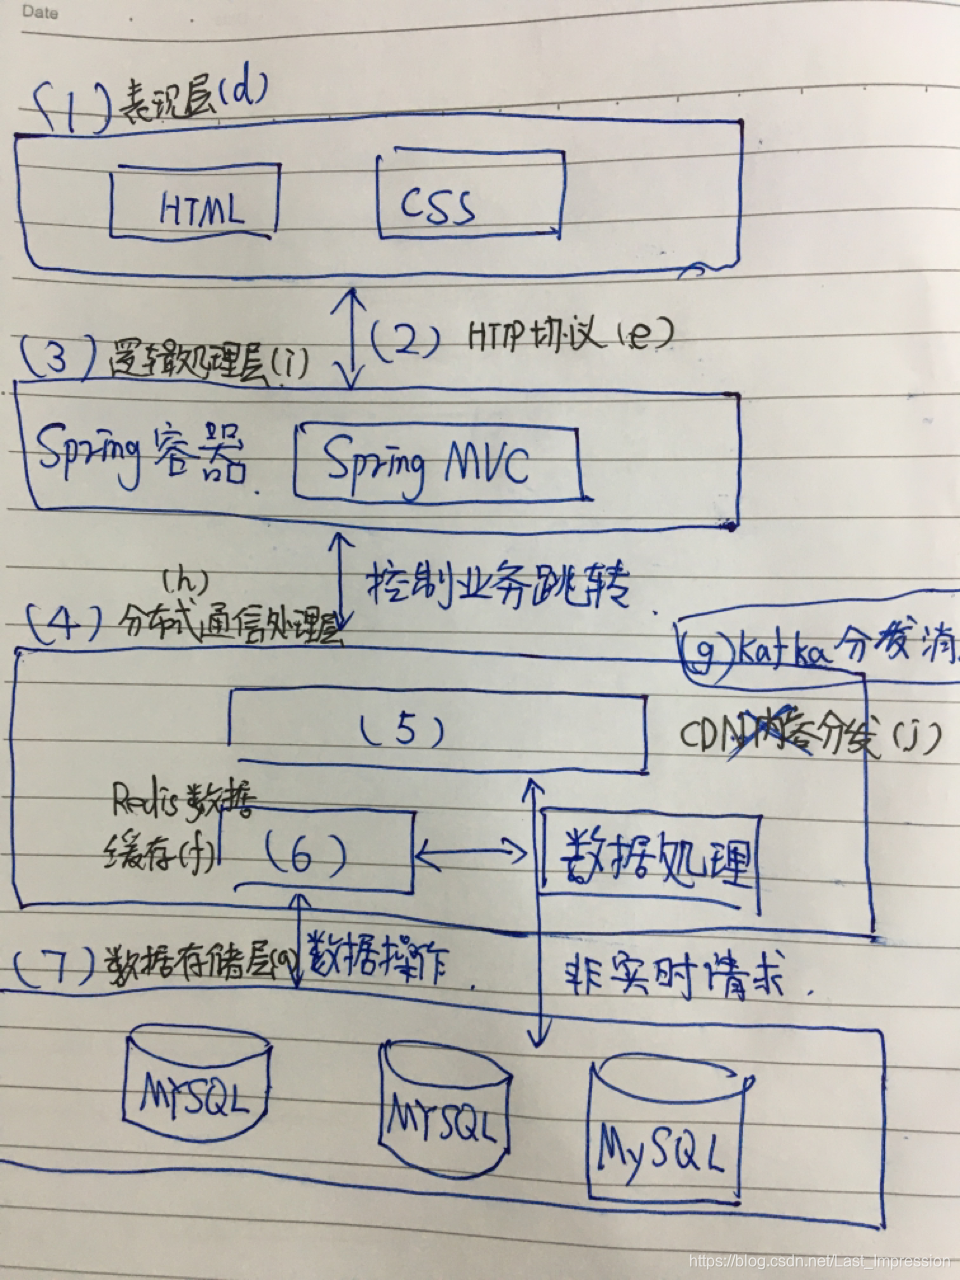 Date
(1) 表现层(d)
HTML
CSS
(2) HTTP协议(e)
(3) 逻辑处理层(i)
Spring容器.
Spring MVC
控制业务跳转.
(h)
(4) 分布式通信处理层
(g) Kafka分发消
(5)
CDN内容分发(j)
Redis数据
缓存(f)
(6)
数据处理
(7) 数据存储层(a)
数据操作.
非实时请求.
MYSQL
MYSQL
MySQL
https://blog.csdn.net/Last_Impression